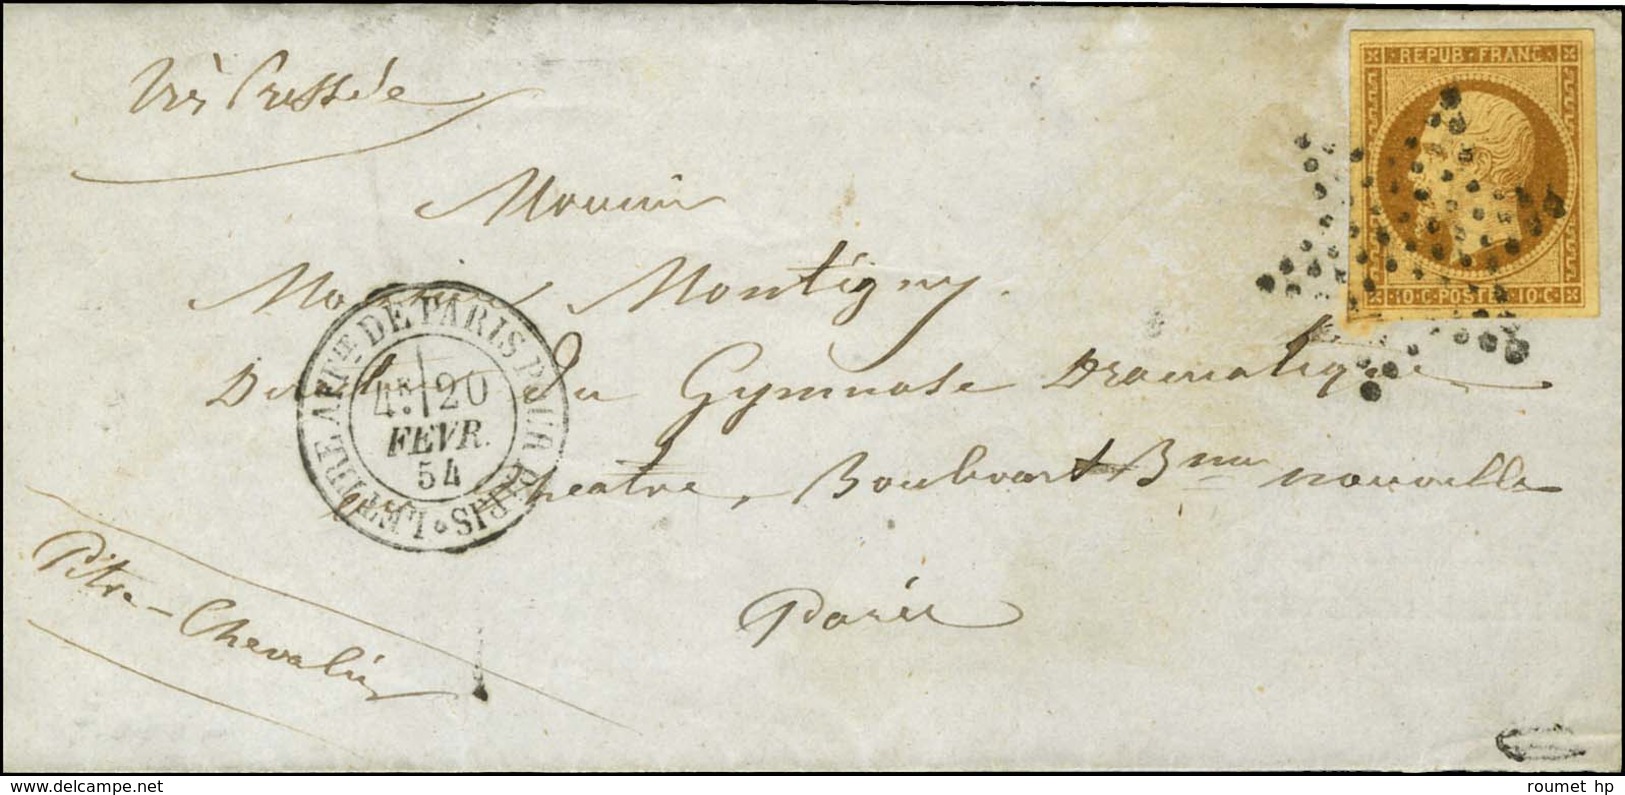 REPUB. FRANC.
10.C. POSTES 10.C.
Très Pressée
Monsieur
Montigny.
du Gymnase Dramatique
Theatre, Boulevart Bnne nouvelle
Paris
LETTRE AFFIE. DE PARIS POUR PARIS
4E. 20
FEVR.
54
Pitre-Chevalier
delcampe.net
roumet hp